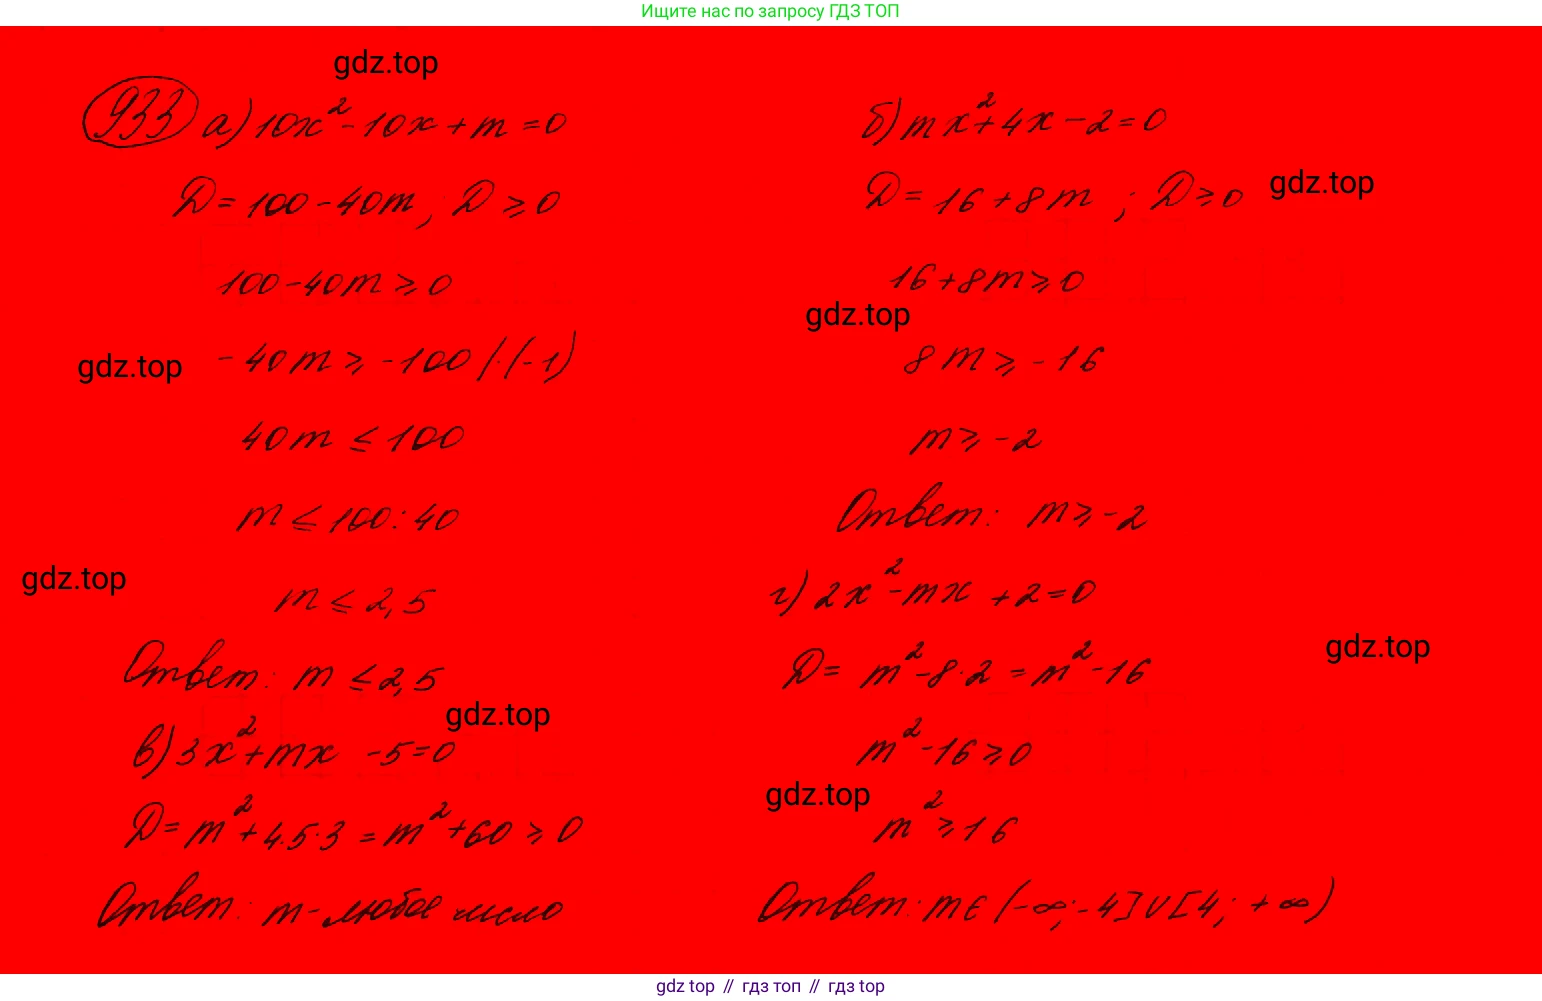 Ищите нас по запросу ГДЗ ТОП
gdz.top
933 а) 10x² - 10x + m = 0
D = 100 - 40m ; D ≥ 0
100 - 40m ≥ 0
- 40m ≥ - 100 | · (-1)
gdz.top
40m ≤ 100
m ≤ 100 : 40
gdz.top
m ≤ 2,5
Ответ: m ≤ 2,5
gdz.top
в) 3x² + mx - 5 = 0
D = m² + 4.5·3 = m² + 60 ≥ 0
Ответ: m - любое число
б) mx² + 4x - 2 = 0
D = 16 + 8m ; D ≥ 0
gdz.top
16 + 8m ≥ 0
gdz.top
8m ≥ - 16
m ≥ - 2
Ответ: m ≥ - 2
г) 2x² - mx + 2 = 0
gdz.top
D = m² - 8·2 = m² - 16
m² - 16 ≥ 0
gdz.top
m² ≥ 16
Ответ: m ∈ (-∞; -4] ∪ [4; +∞)
gdz top // гдз топ // гдз top